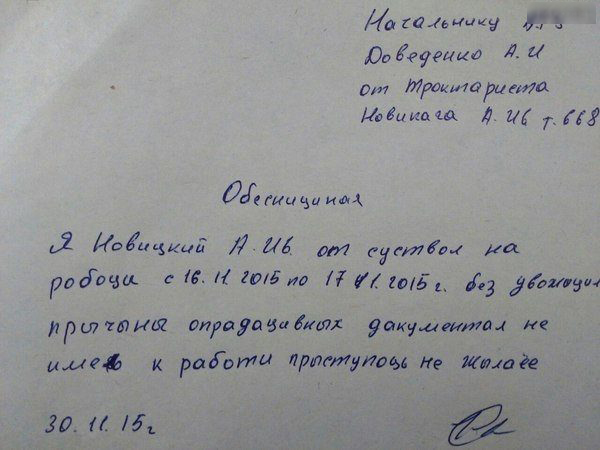 Начальнику
Доведенко А.И
от трактариста
Новикага А.Ив т.668
Обесницина́я
Я Новицкий А.Ив. от суствол на
робоци с 16.11.2015 по 17.11.2015г. без увожицил
прычыны опрадацивных дакументал не
имею к работи прыступоць не жылаее
30.11.15г